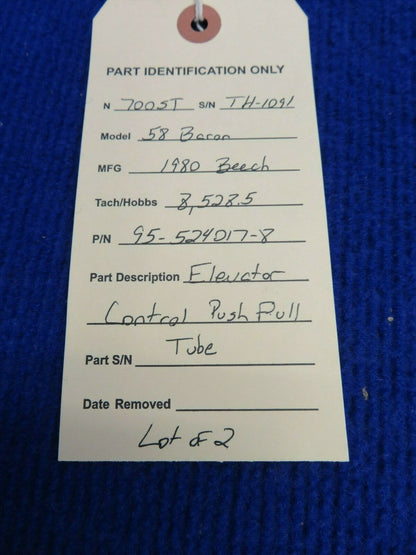 PART IDENTIFICATION ONLY
N 7005T S/N TH-1091
Model 58 Baron
MFG 1980 Beech
Tach/Hobbs 8,528.5
P/N 95-524017-8
Part Description Elevator
Control Push Pull
Tube
Part S/N
Date Removed
Lot of 2